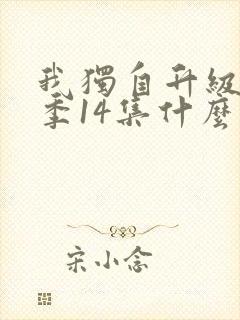 我獨自升級
季14集什麼
宋小念